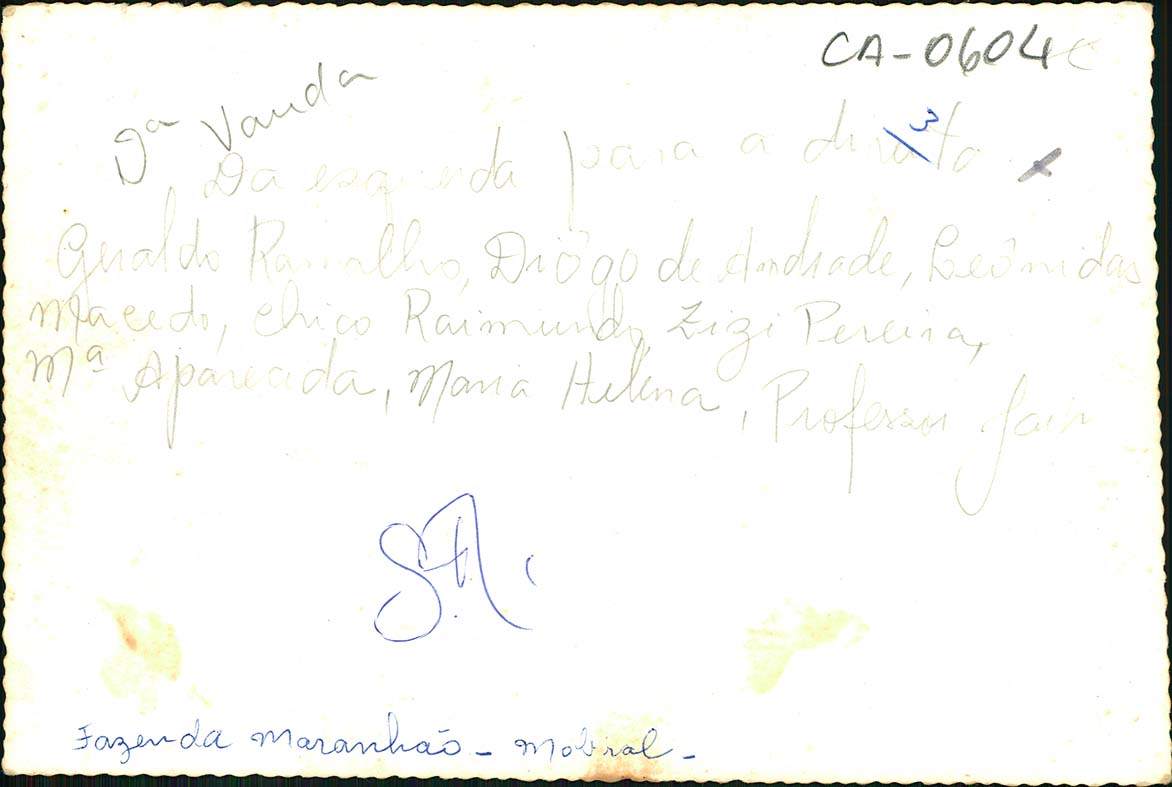 CA-0604
gª Vanda
3
Da esquerda para a direito
Geraldo Ramalho, Diôgo de Andrade, Leônidas
Macedo, Chico Raimundo, Zizi Pereira,
Mª Aparecida, Maria Helena, Professor Jair
Fazenda Maranhão - Mobral -